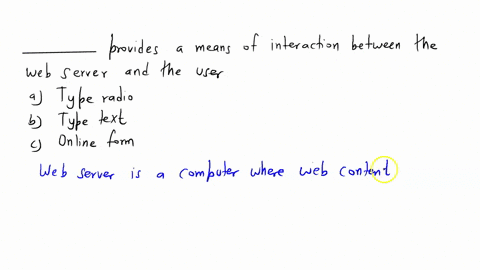 ________ provides a means of interaction between the
web server and the user
a) Type radio
b) Type text
c) Online form
Web server is a computer where web content